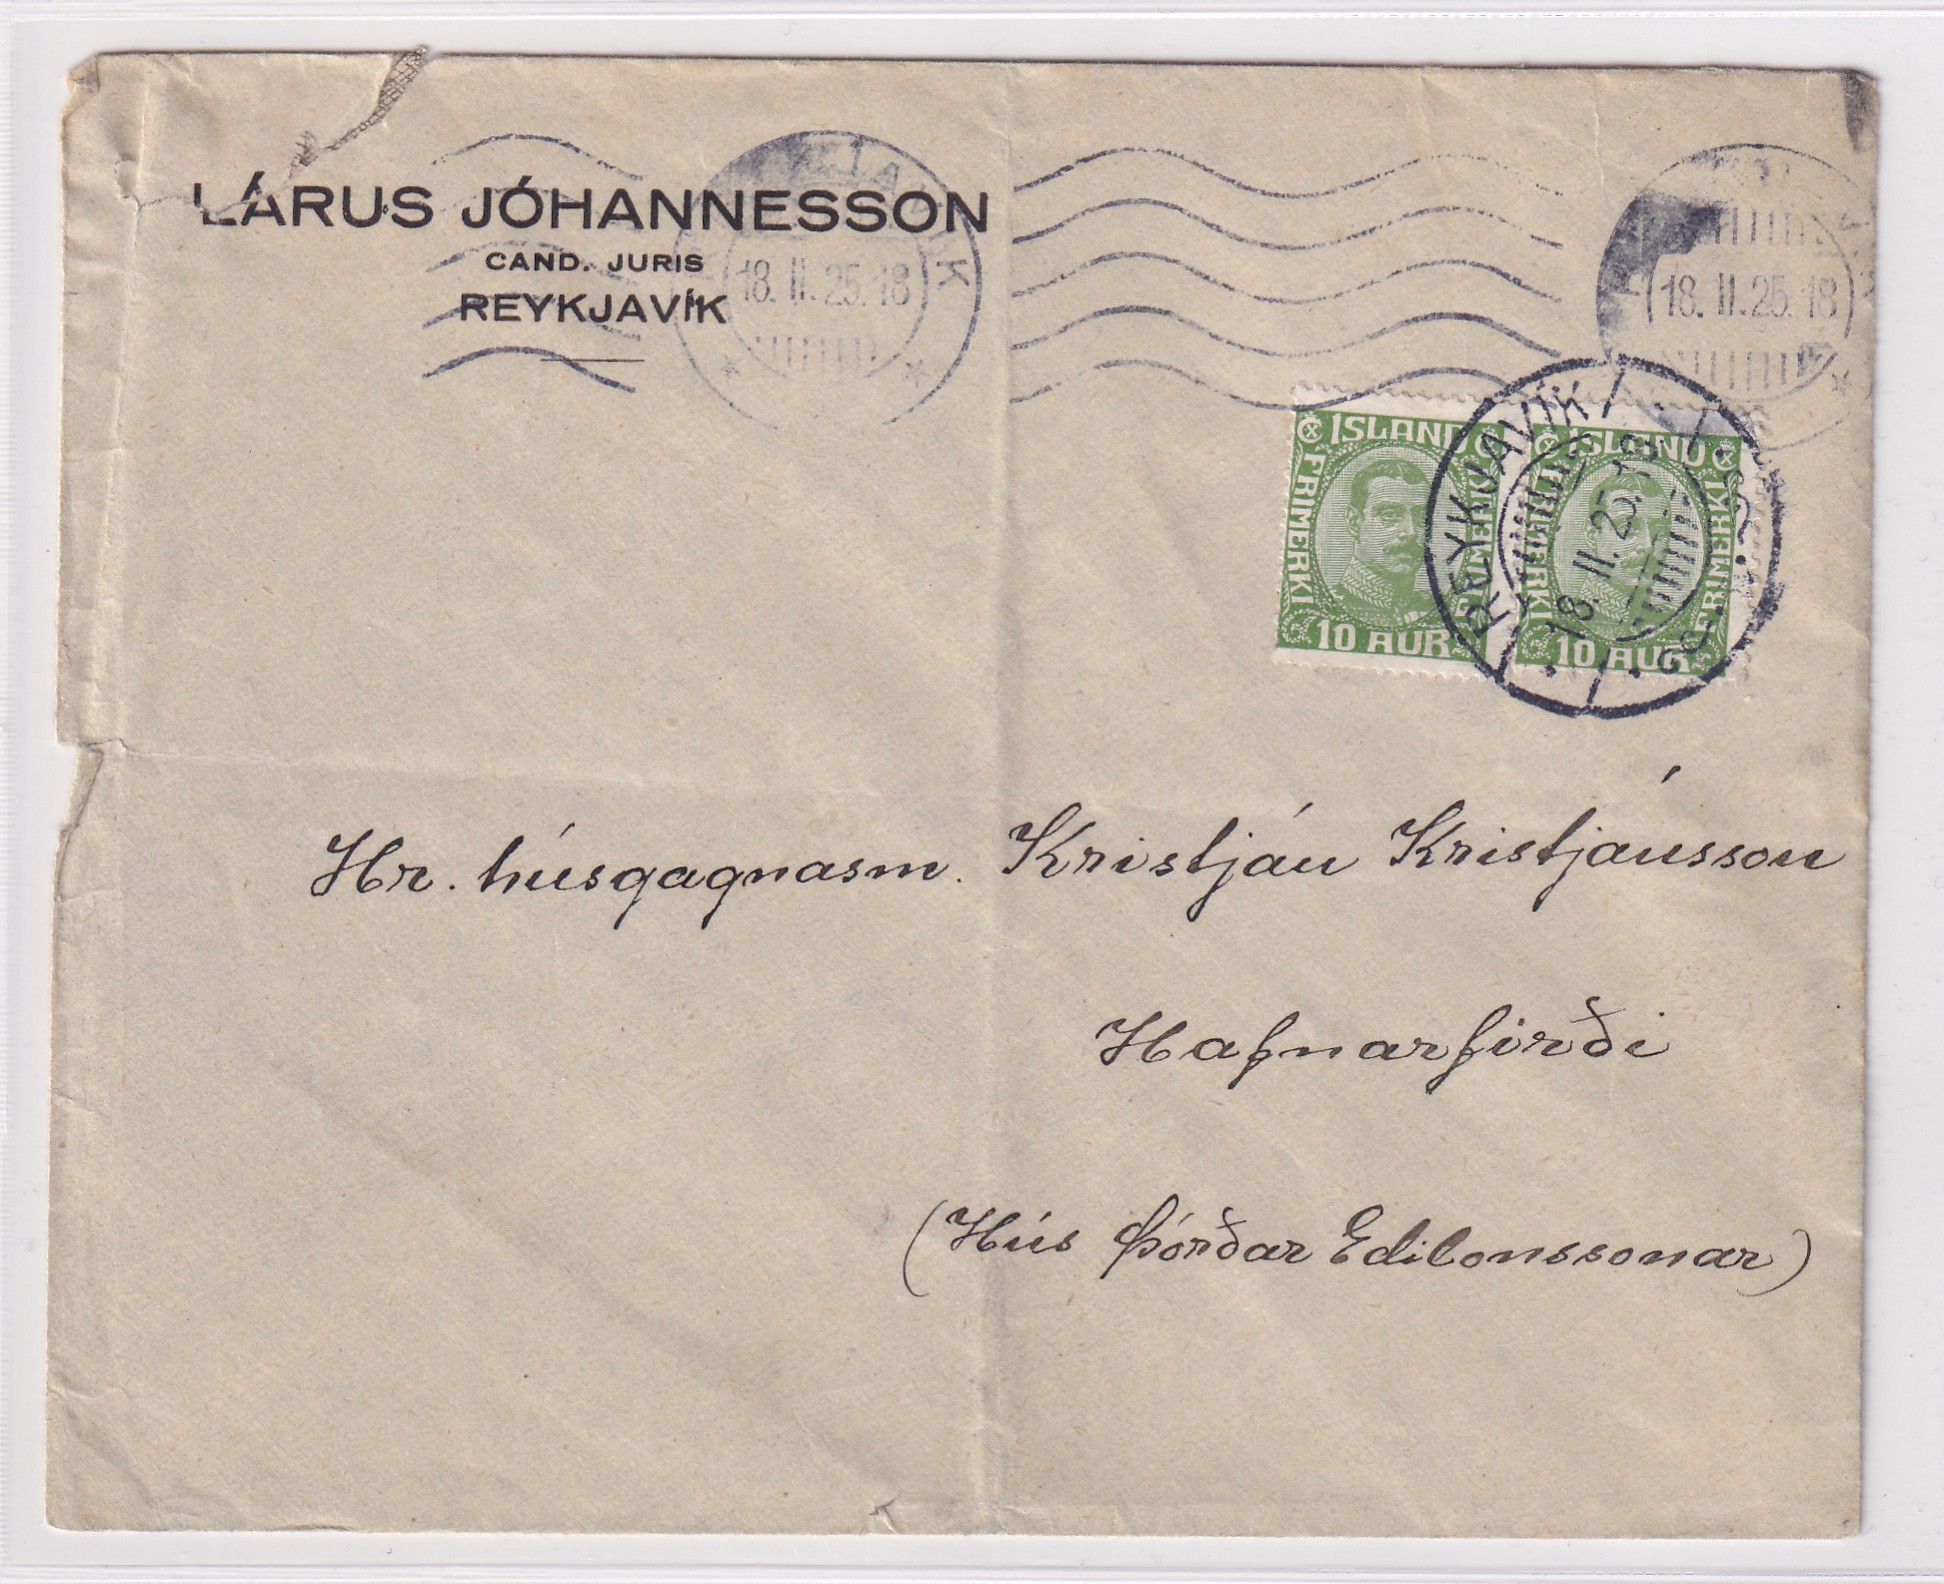 LÁRUS JÓHANNESSON
CAND. JURIS
REYKJAVÍK
18. II. 25. 18
18. II. 25. 18
ISLAND
FRIMERKI
FRIMERKI
10 AUR
ISLAND
FRIMERKI
FRIMERKI
10 AUR
REYKJAVÍK
18. II. 25. 18
Hr. húsgagnasm. Kristján Kristjánsson
Hafnarfirði
(Hús Þórðar Edilonssonar)